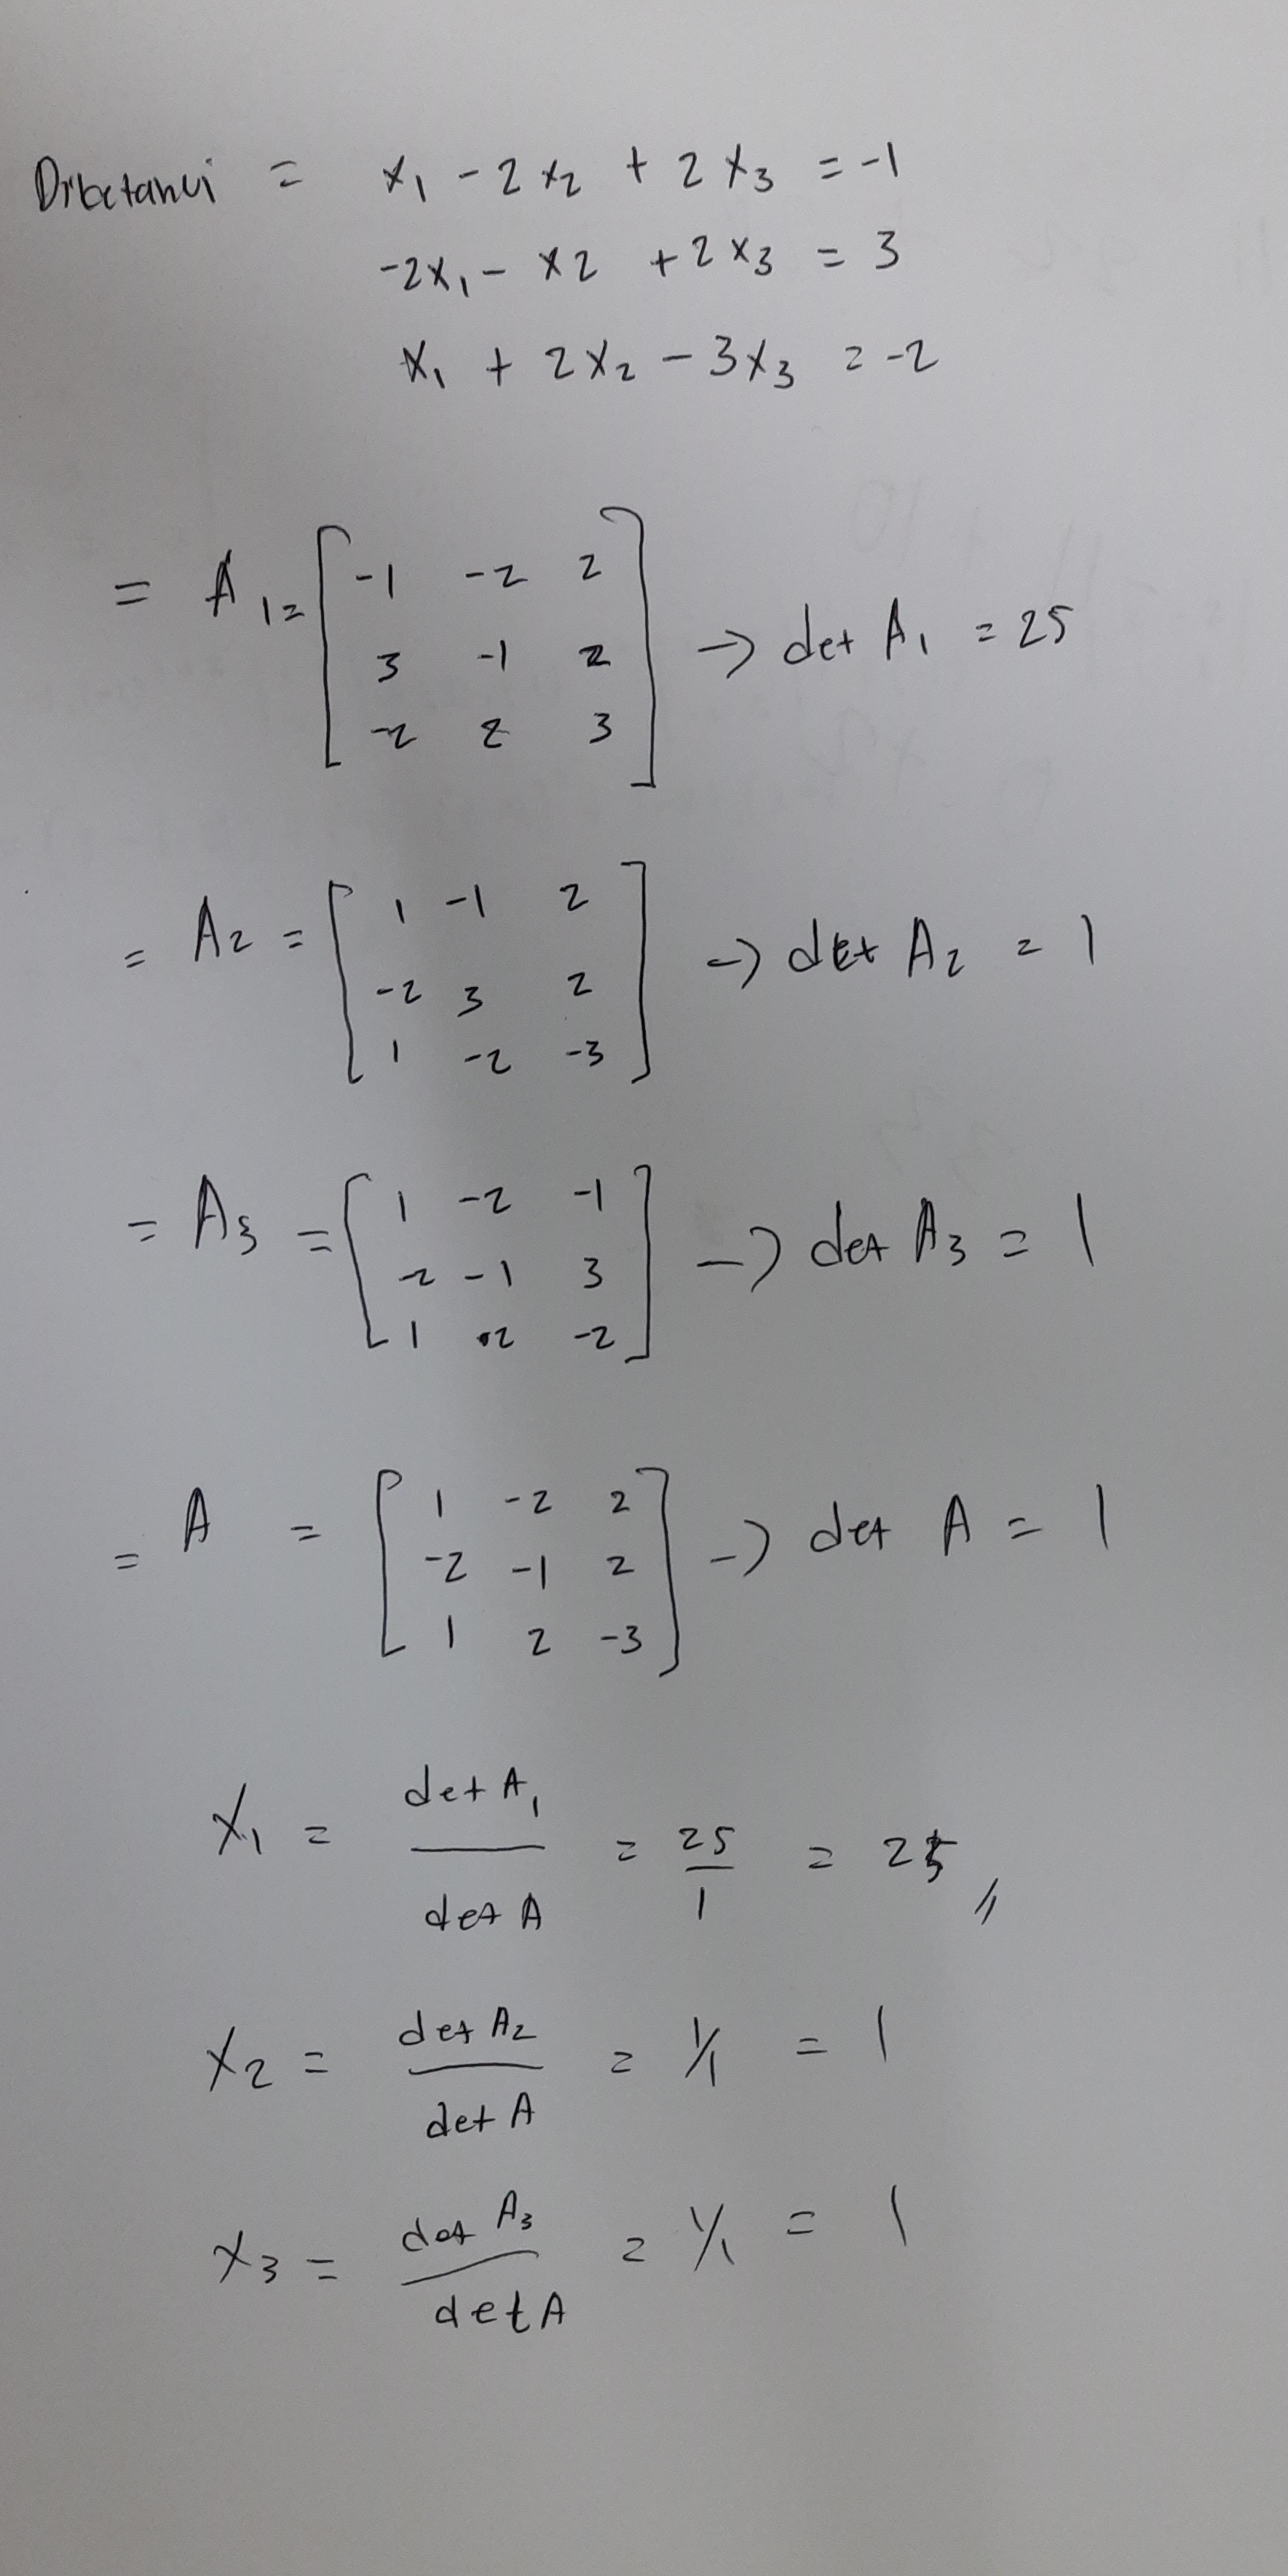 Diketahui = x₁ - 2x₂ + 2x₃ = -1
-2x₁ - x2 + 2x₃ = 3
x₁ + 2x₂ - 3x₃ = -2
= A₁ = [ -1 -2 2
3 -1 2
-2 2 3 ] → det A₁ = 25
= A₂ = [ 1 -1 2
-2 3 2
1 -2 -3 ] → det A₂ = 1
= A₃ = [ 1 -2 -1
-2 -1 3
1 2 -2 ] → det A₃ = 1
= A = [ 1 -2 2
-2 -1 2
1 2 -3 ] → det A = 1
x₁ = det A₁ / det A = 25/1 = 25 //
x₂ = det A₂ / det A = 1/1 = 1
x₃ = det A₃ / det A = 1/1 = 1